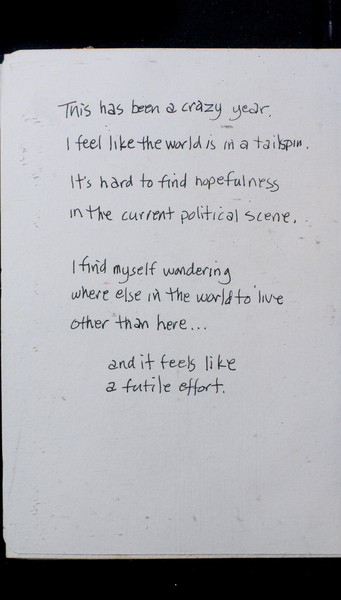 This has been a crazy year.
I feel like the world is in a tailspin.
It's hard to find hopefulness
in the current political scene.
I find myself wondering
where else in the world to live
other than here...
and it feels like
a futile effort.